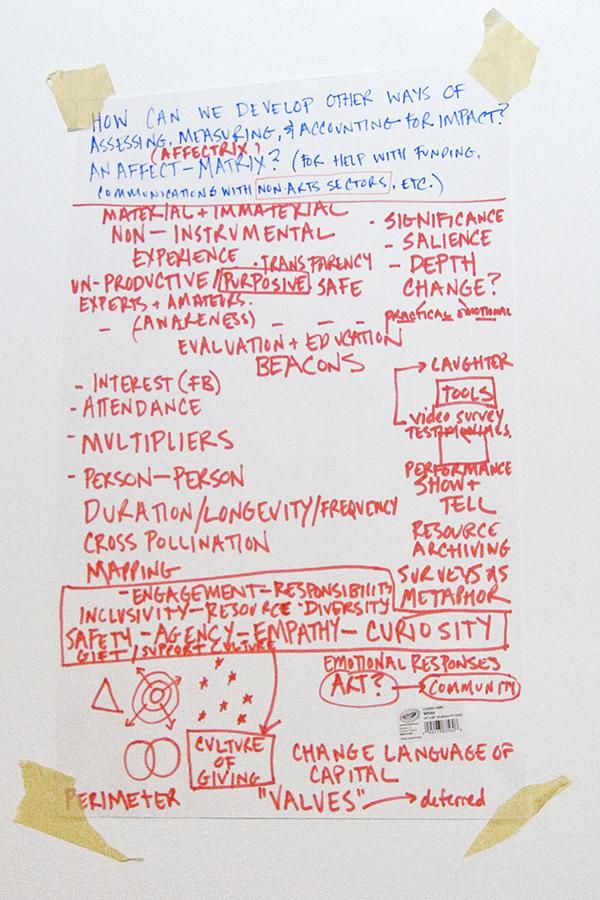 HOW CAN WE DEVELOP OTHER WAYS OF
ASSESSING, MEASURING, & ACCOUNTING FOR IMPACT?
(AFFECTRIX)
AN AFFECT-MATRIX? (FOR HELP WITH FUNDING,
COMMUNICATIONS WITH NON-ARTS SECTORS, ETC.)
MATERIAL + IMMATERIAL
NON-INSTRUMENTAL
EXPERIENCE
• TRANSPARENCY
UN-PRODUCTIVE/PURPOSIVE SAFE
EXPERTS + AMATEURS.
- (AWARENESS) - - -
EVALUATION + EDUCATION
BEACONS
- SIGNIFICANCE
- SALIENCE
- DEPTH
CHANGE?
PRACTICAL EMOTIONAL
- INTEREST (FB)
- ATTENDANCE
- MULTIPLIERS
- PERSON-PERSON
DURATION/LONGEVITY/FREQUENCY
CROSS POLLINATION
MAPPING
LAUGHTER
TOOLS
video survey
TESTIMONIALS.
PERFORMANCE
SHOW +
TELL
RESOURCE
ARCHIVING
SURVEYS AS
METAPHOR
- ENGAGEMENT - RESPONSIBILITY
INCLUSIVITY - RESOURCE • DIVERSITY
SAFETY - AGENCY - EMPATHY - CURIOSITY
GIFT / SUPPORT CULTURE
EMOTIONAL RESPONSES
ART? → COMMUNITY
CULTURE
OF
GIVING
PERIMETER
CHANGE LANGUAGE OF
CAPITAL
"VALUES" → deferred
Crayola
White